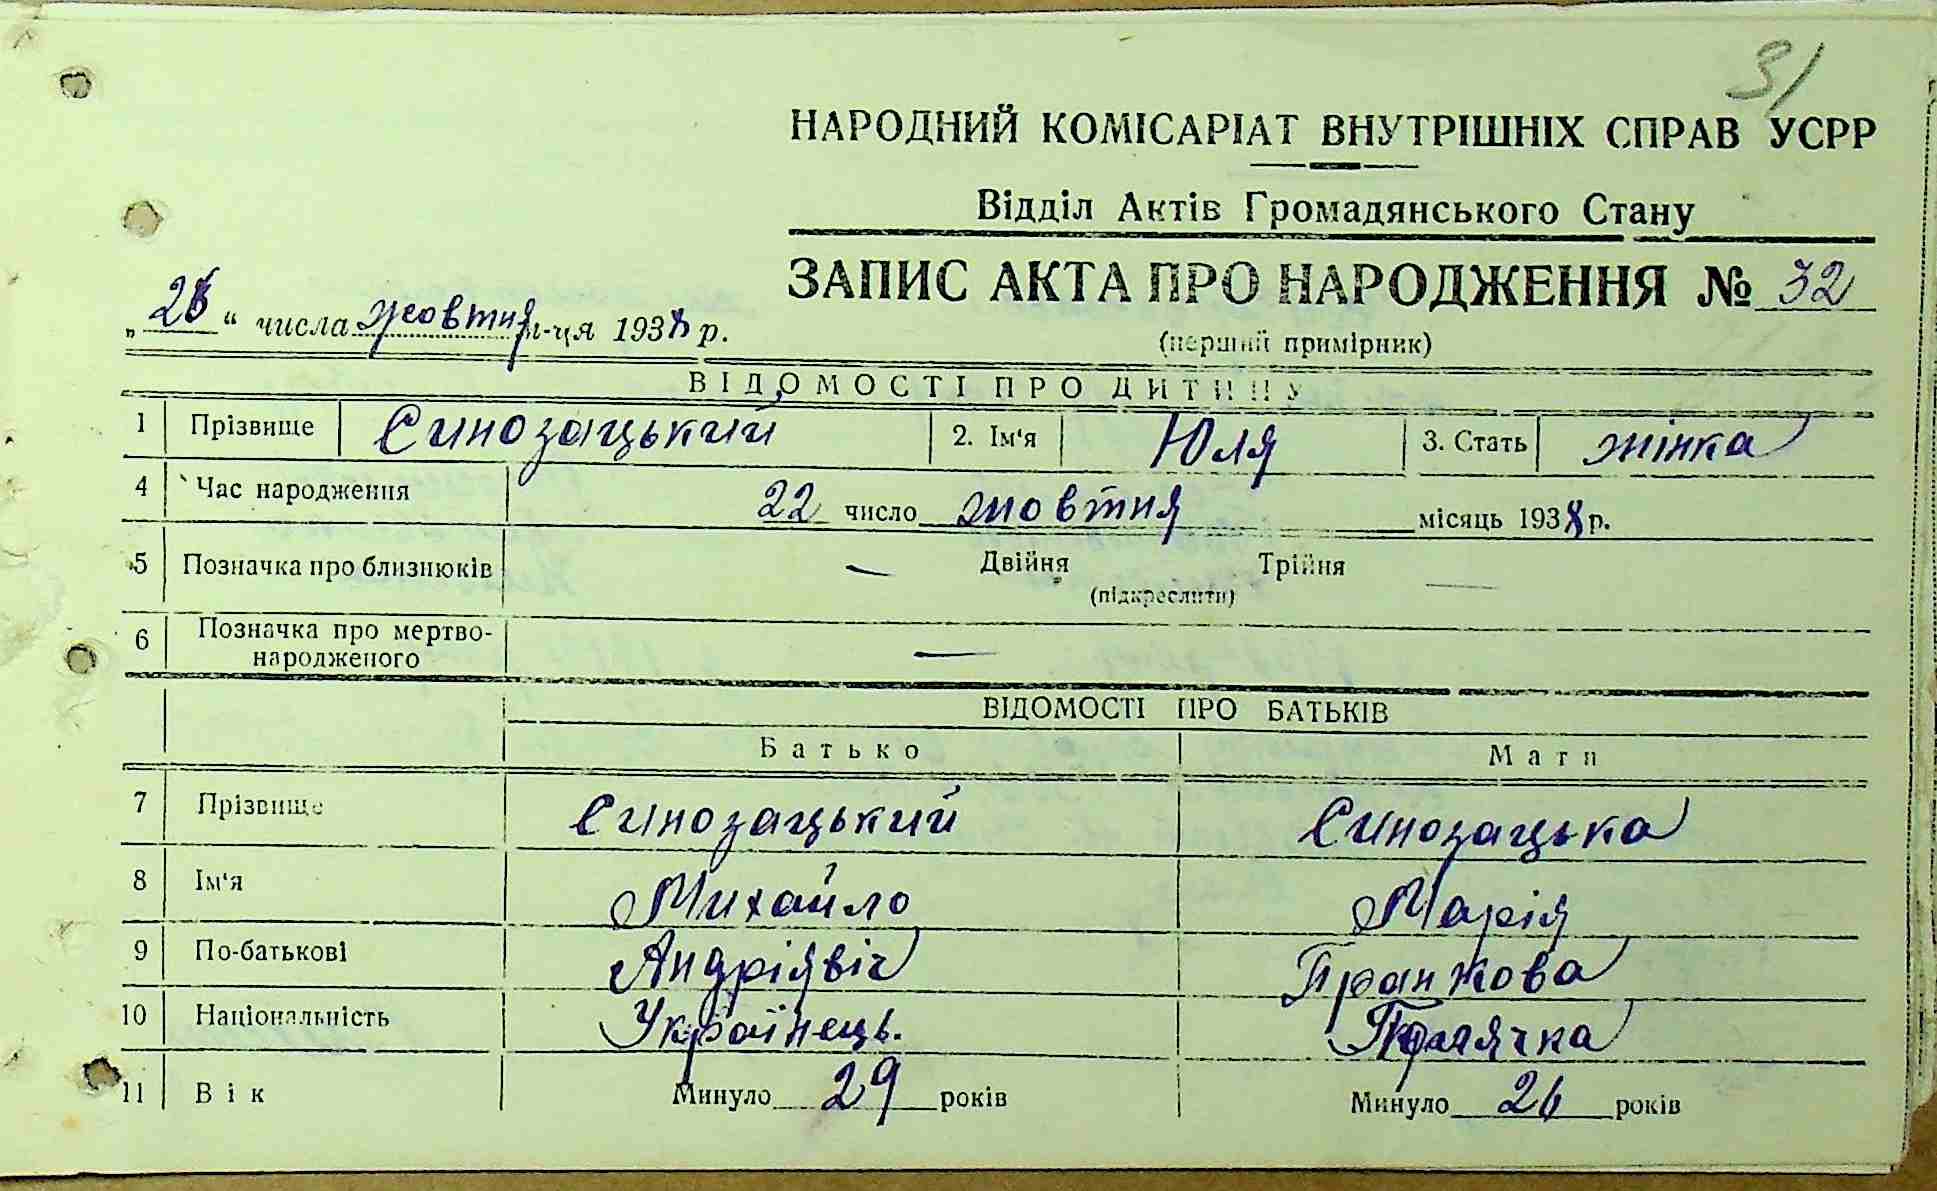 31
НАРОДНИЙ КОМІСАРІАТ ВНУТРІШНІХ СПРАВ УСРР
Відділ Актів Громадянського Стану
ЗАПИС АКТА ПРО НАРОДЖЕННЯ № 32
(перший примірник)
„ “ числа жовтня м-ця 1938 р.
ВІДОМОСТІ ПРО ДИТИНУ
1 Прізвище Синозацький 2. Ім'я Юля 3. Стать жінка
4 Час народження 22 число жовтня місяць 1938 р.
5 Позначка про близнюків — Двійня Трійня —
(підкреслити)
6 Позначка про мертво-
народженого —
ВІДОМОСТІ ПРО БАТЬКІВ
Батько Мати
7 Прізвище Синозацький Синозацька
8 Ім'я Михайло Марія
9 По-батькові Андріявіч Транжова
10 Національність Українець. Полячка
11 Вік Минуло 29 років Минуло 26 років